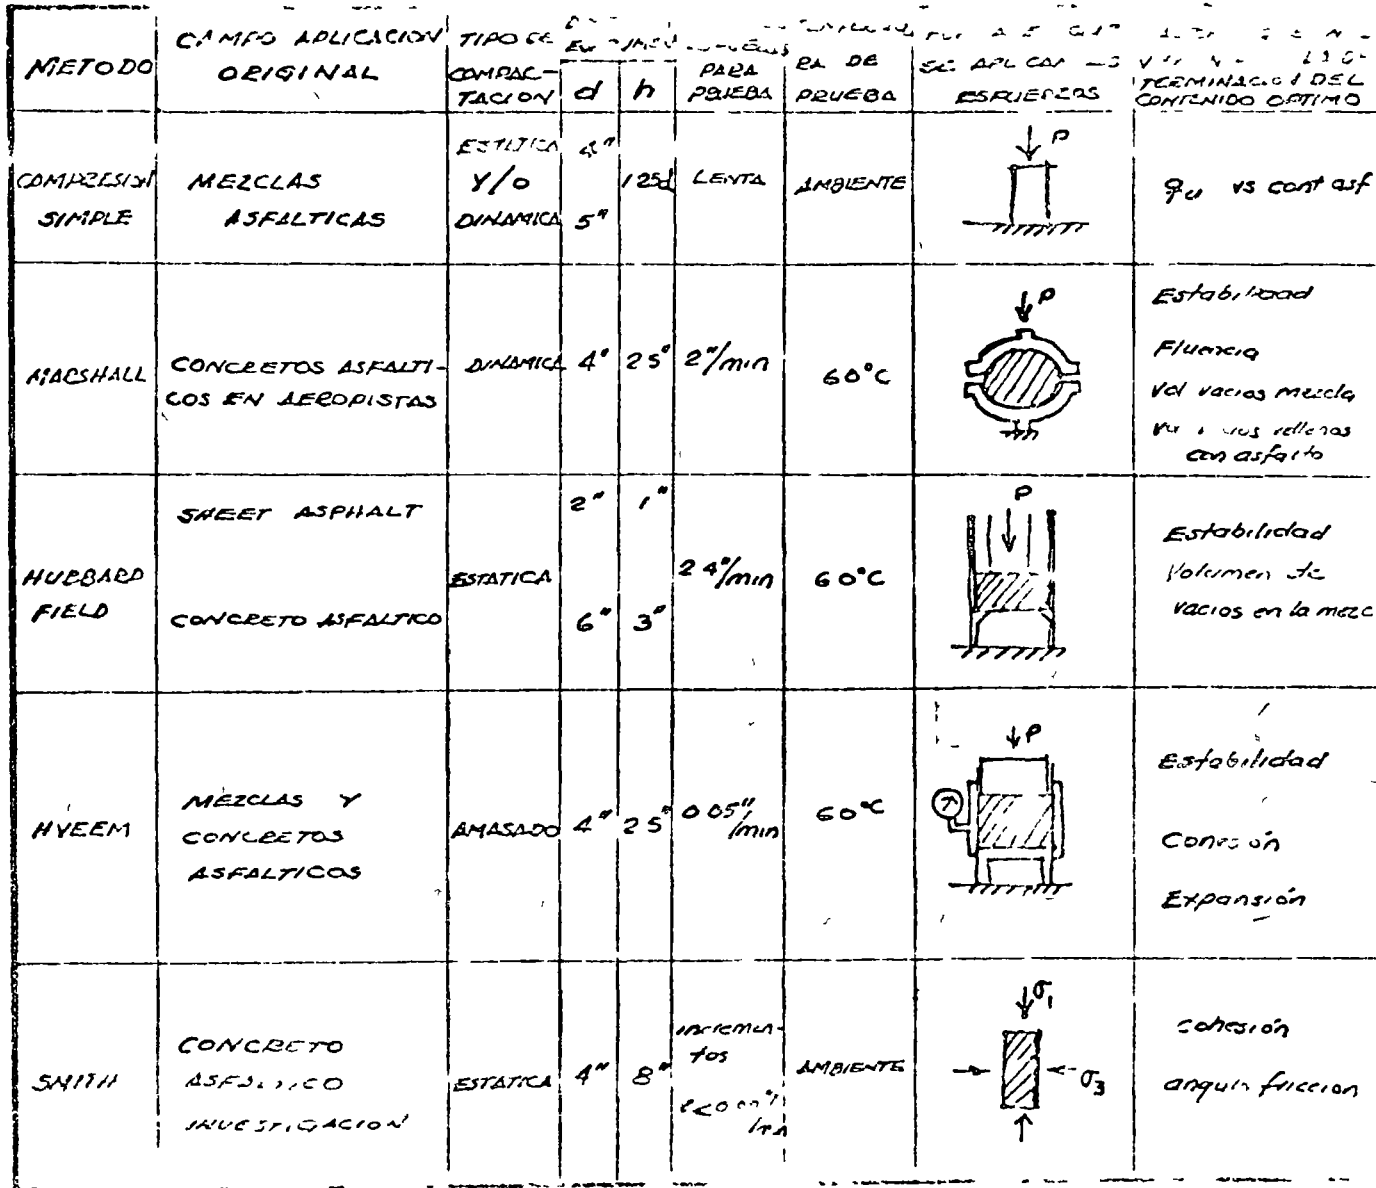 METODO
CAMPO APLICACION
ORIGINAL
TIPO DE
COMPAC-
TACION
d
h
PARA
PRUEBA
RA DE
PRUEBA
SE APLICAN
ESFUERZOS
TERMINACION DEL
CONTENIDO OPTIMO
COMPRESION
SIMPLE
MEZCLAS
ASFALTICAS
ESTATICA
Y/O
DINAMICA
4"
5"
1 25d
LENTA
AMBIENTE
P
qu vs cont asf
MARSHALL
CONCRETOS ASFALTI-
COS EN AEROPISTAS
DINAMICA
4"
2 5"
2"/min
60°C
P
Estabilidad
Fluencia
Vol vacios mezcla
rellenos
con asfalto
HUBBARD
FIELD
SHEET ASPHALT
CONCRETO ASFALTICO
ESTATICA
2"
1"
6"
3"
2 4"/min
60°C
P
Estabilidad
Volumen de
vacios en la mezc
HVEEM
MEZCLAS Y
CONCRETOS
ASFALTICOS
AMASADO
4"
2 5"
0 05"
/min
60°C
P
Estabilidad
Cohesión
Expansión
SMITH
CONCRETO
ASFALTICO
INVESTIGACION
ESTATICA
4"
8"
incremen-
tos
AMBIENTE
σ1
σ3
cohesión
angulo friccion